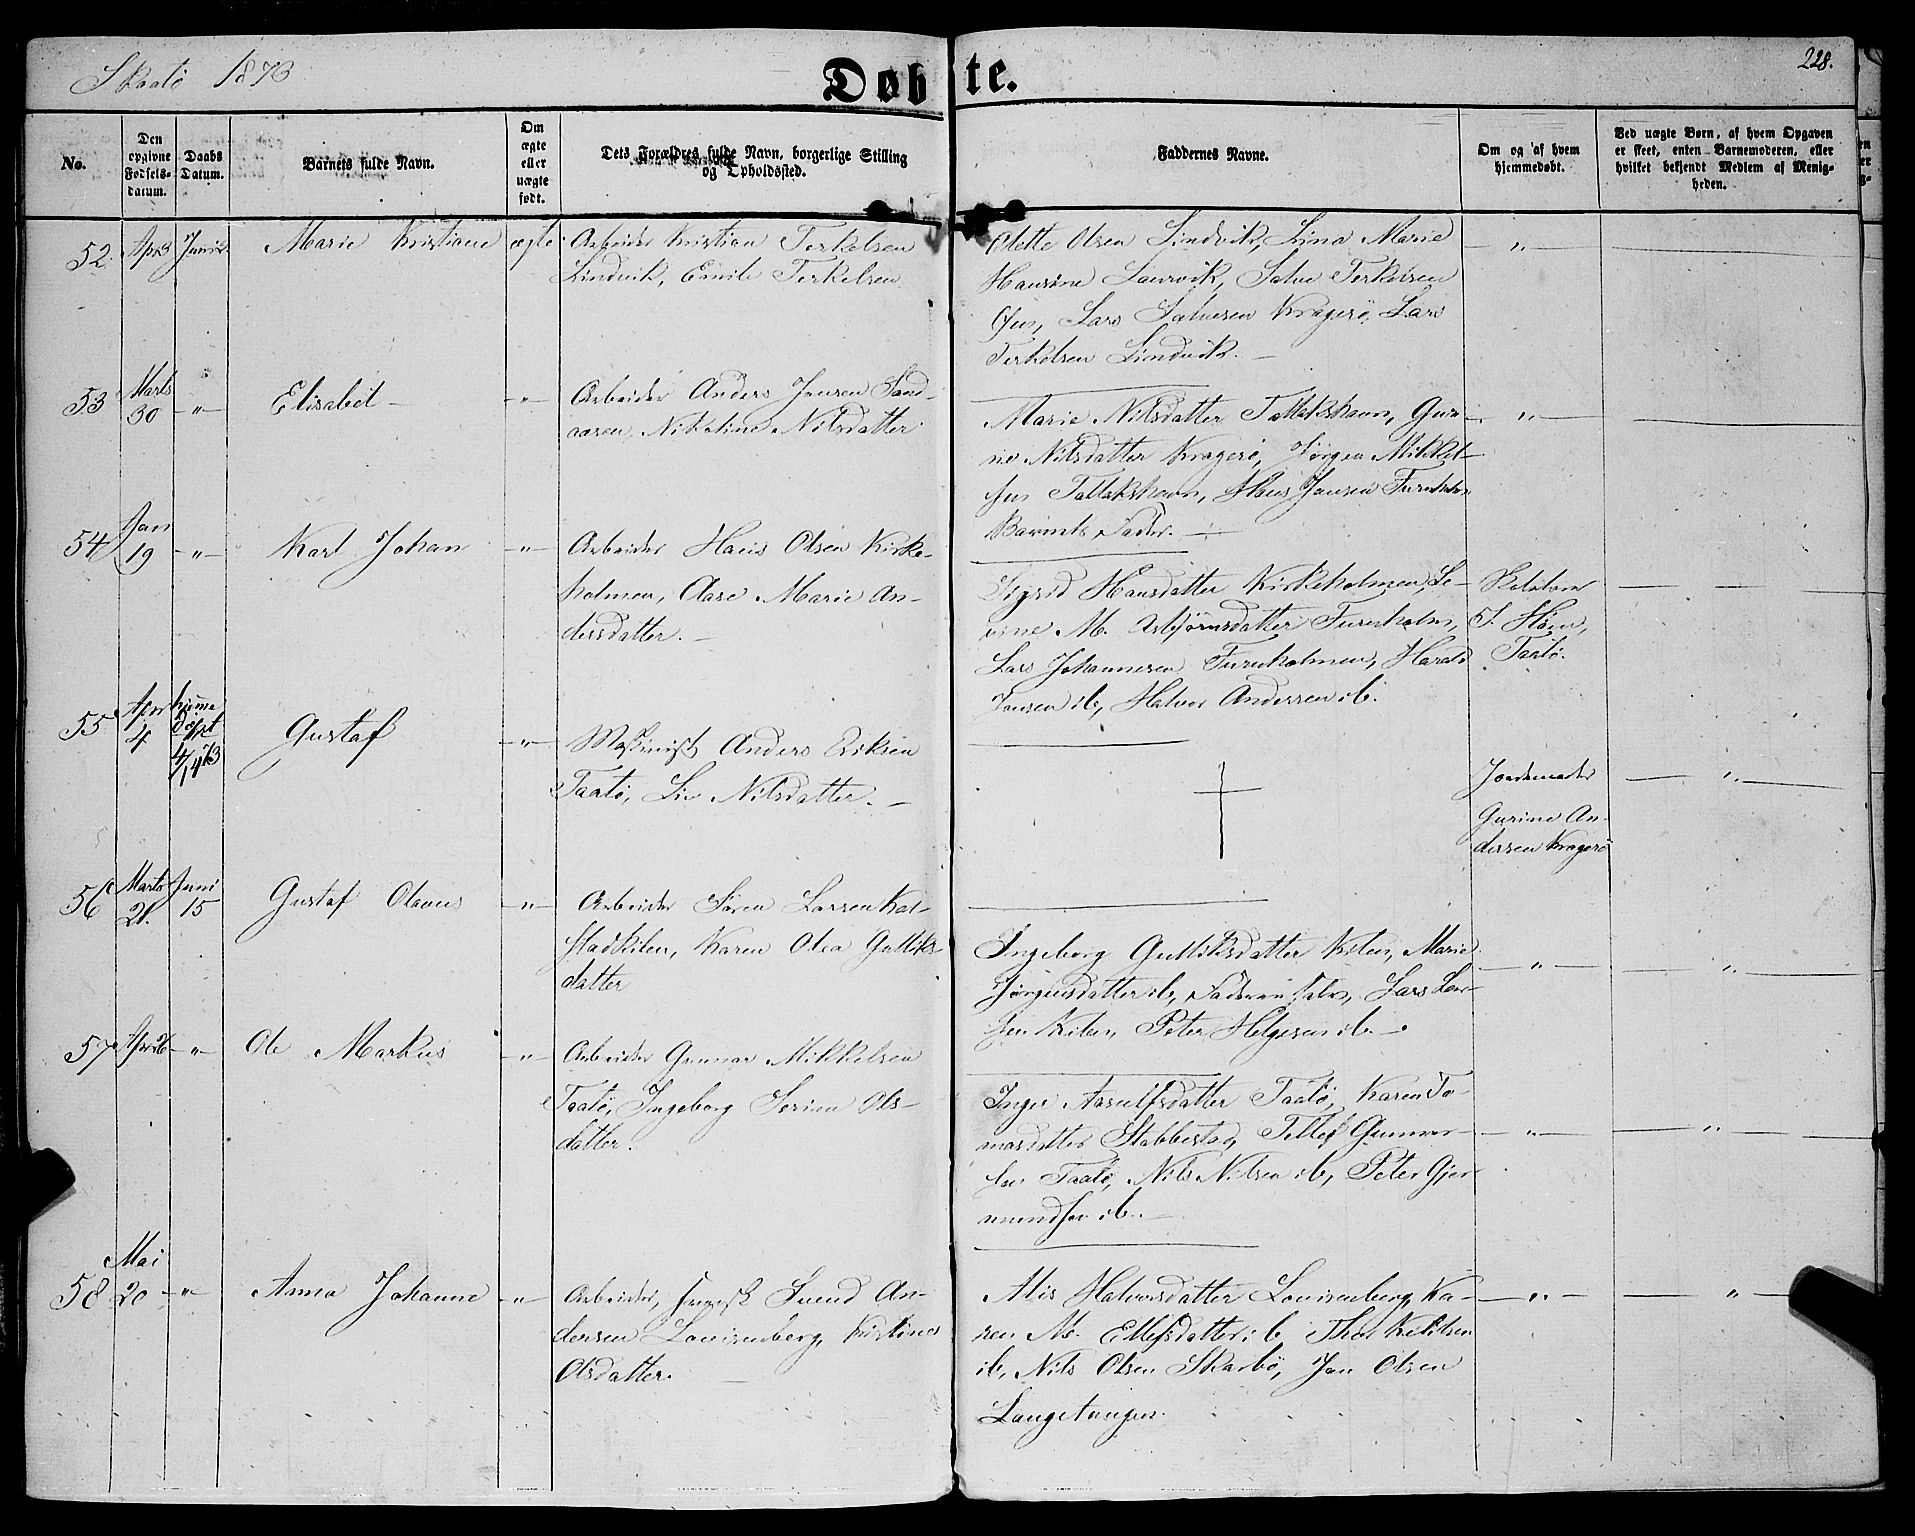 Skaatø 1873
Døbte.
228.
No.
Den opgivne Fødsels-datum.
Daabs Datum.
Barnets fulde Navn.
Om ægte eller uægte født.
Dets Forældres fulde Navn, borgerlige Stilling og Opholdssted.
Faddernes Navne.
Om og af hvem hjemmedøbt.
Ved uægte Børn, af hvem Opgaven er skeet, enten Barnemoderen, eller hvilket bekjendt Medlem af Menigheden.
52 Apr 3 Juni Marie Kristiane ægte Arbeider Kristian Terkelsen
Lindvik, Emile Terkelsen
Olette Olsen Lindvik, Lina Marie
Hansine Laurvik, Salve Terkelsen
Lars Salvesen Kragerø, Lars
Terkelsen Lindvik. —
53 Marts 30 — " — Elisabet — " — Arbeider Anders Jensen Sand-
aasen, Nikoline Nilsdatter
Marie Nilsdatter Tallakshavn, Gun-
ne Nilsdatter Kragerø, Jørgen Mikkel-
sen Tallakshavn, Hans Jansen Furuholm
Barnets Fader. —
54 Jan 19 — " — Karl Johan — " — Arbeider Hans Olsen Kirke-
holmen, Aase Marie An-
dersdatter. —
Sigrid Hansdatter Kirkeholmen, Le-
vine M. Asbjørnsdatter Furuholm,
Lars Johannesen Furuholmen, Harald
Jansen ib, Halvor Anderssen ib.
J. Høen,
Taatø.
55 Apr 4 hjemme døbt 4/4 73 Gustaf — " — Maskinist Anders Eriksen
Taatø, Liv Nilsdatter. —
Jordemoder
Gurine An-
dersen Kragerø
56 Marts 21. Juni 15 Gustaf Olavus — " — Arbeider Søren Larsen Kal-
stadkilen, Karen Olea Gulliks-
datter
Ingeborg Gulliksdatter Kilen, Marie
Jørgensdatter ib, Faderen selv, Lars Lar-
sen Kilen, Peter Helgesen ib. —
57 Apr 26 — " — Ole Markus — " — Arbeider Gunnar Mikkelsen
Taatø, Ingeborg Serine Ols-
datter.
Inger Aasulfsdatter Taatø, Karen To-
masdatter Stabbestad, Tellef Gunnar-
sen Taatø, Nils Nilsen ib, Peter Gjer-
mundsen ib. —
58 Mai 20 — " — Anna Johanne — " — Arbeider, Svend An-
dersen Louisenberg, Kirstine
Olsdatter.
Alis Halvorsdatter Louisenberg, Ka-
ren M. Ellefsdatter ib, Thor Keldsen
ib, Nils Olsen Skarbø, Jan Olsen
Langetangen.